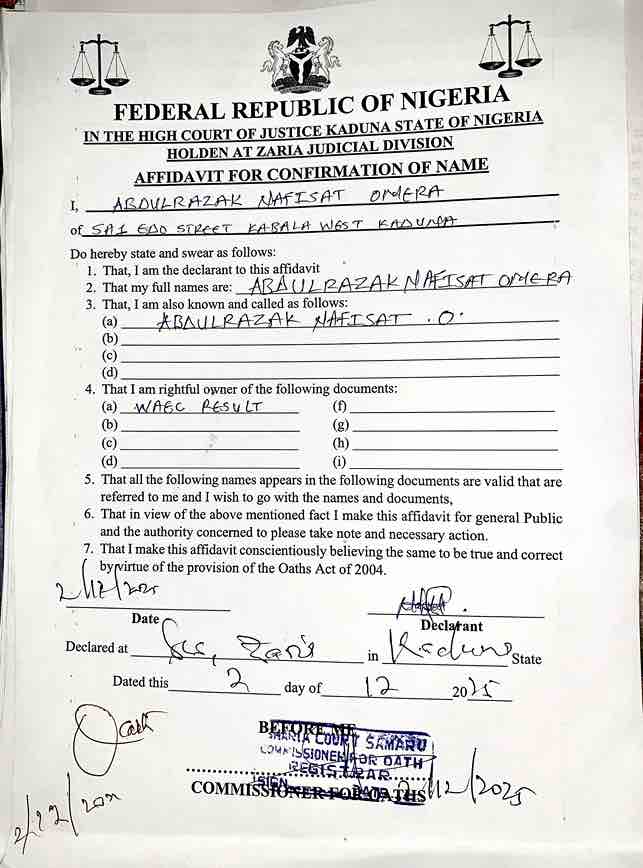 FEDERAL REPUBLIC OF NIGERIA
IN THE HIGH COURT OF JUSTICE KADUNA STATE OF NIGERIA
HOLDEN AT ZARIA JUDICIAL DIVISION
AFFIDAVIT FOR CONFIRMATION OF NAME
I, ABDULRAZAK NAFISAT OMERA
of SA1 EDO STREET KABALA WEST KADUNA
Do hereby state and swear as follows:
1. That, I am the declarant to this affidavit
2. That my full names are: ABDULRAZAK NAFISAT OMERA
3. That, I am also known and called as follows:
(a) ABDULRAZAK NAFISAT .O.
(b)
(c)
(d)
4. That I am rightful owner of the following documents:
(a) WAEC RESULT (f)
(b) (g)
(c) (h)
(d) (i)
5. That all the following names appears in the following documents are valid that are
referred to me and I wish to go with the names and documents,
6. That in view of the above mentioned fact I make this affidavit for general Public
and the authority concerned to please take note and necessary action.
7. That I make this affidavit conscientiously believing the same to be true and correct
by virtue of the provision of the Oaths Act of 2004.
2/12/2025
Date Declarant
Declared at Zaria in Kaduna State
Dated this 2 day of 12 2025
BEFORE ME
SHARIA COURT SAMARU
COMMISSIONER FOR OATH
REGISTRAR
SIGN DATE 2/12/2025
COMMISSIONER FOR OATHS
Cash